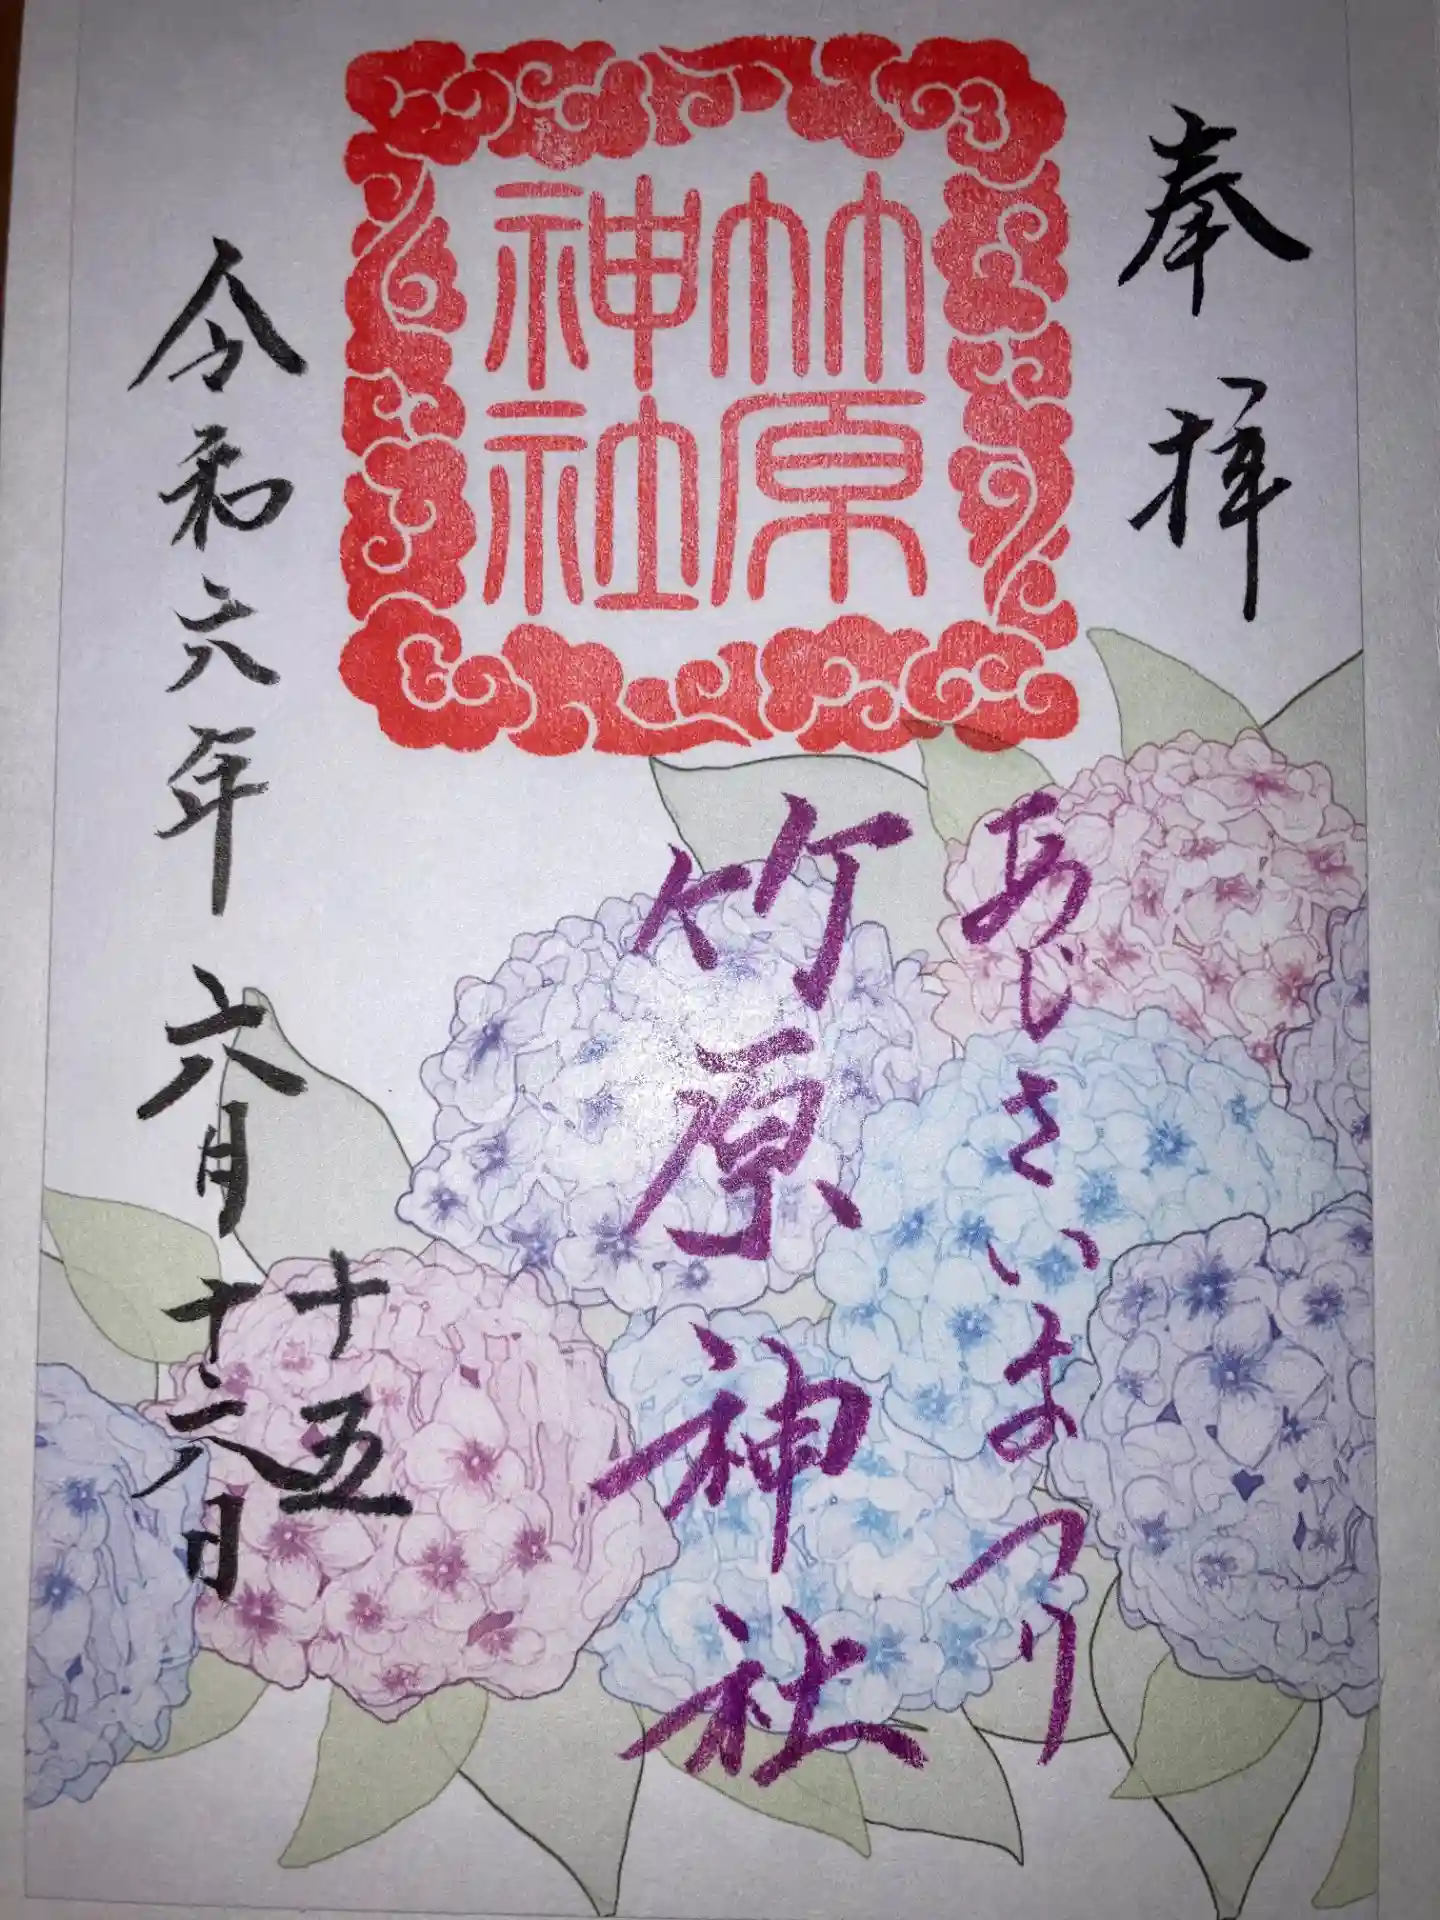 奉拝
あじさいまつり
竹原
神社
竹原神社
十五
令和六年 六月 十六日